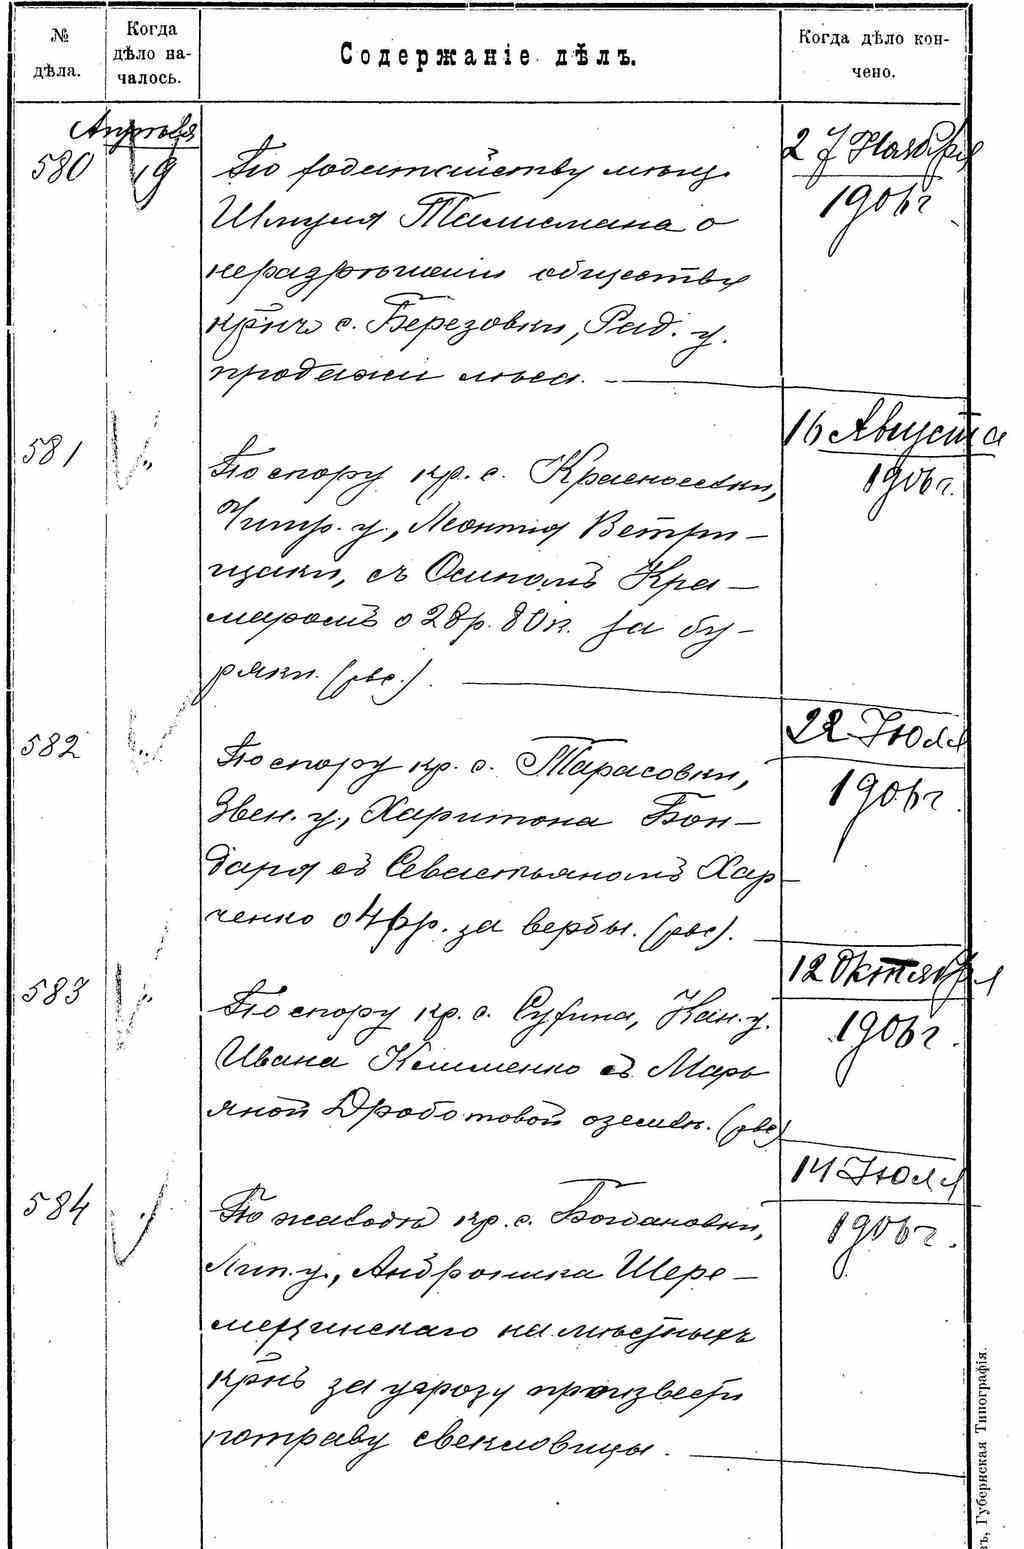 № дѣла.
Когда дѣло на-
чалось.
Содержаніе дѣлъ.
Когда дѣло кон-
чено.
Апрѣля
580
19
По ходатайству мѣщ.
Шмуля Талисмана о
неразрѣшеніи обществу
крнъ с. Березовки, Рад. у.
продажи лѣса.
27 Ноября
1906 г.
581
"
По спору кр. с. Красносілки,
Чигир. у., Леонтія Ветри-
щаки, съ Осипомъ Кра-
маромъ о 28 р. 80 к. за бу-
ряки. (рвс.).
16 Августа
1906 г.
582
"
По спору кр. с. Тарасовки,
Звен. у., Харитона Бон-
даря съ Севастьяномъ Хар-
ченко о р. за вербы. (рвс).
22 Іюля
1906 г.
583
"
По спору кр. с. Сухина, Кан. у.
Ивана Клименко съ Марь
яной Дроботовой о землѣ. (рвс)
12 Октября
1906 г.
584
"
По жалобѣ кр. с. Богдановки,
Лип. у., Андроника Шере-
метинскаго на мѣстныхъ
крнъ за угрозу произвести
потраву свекловицы.
14 Іюля
1906 г.
Губернская Типографія.